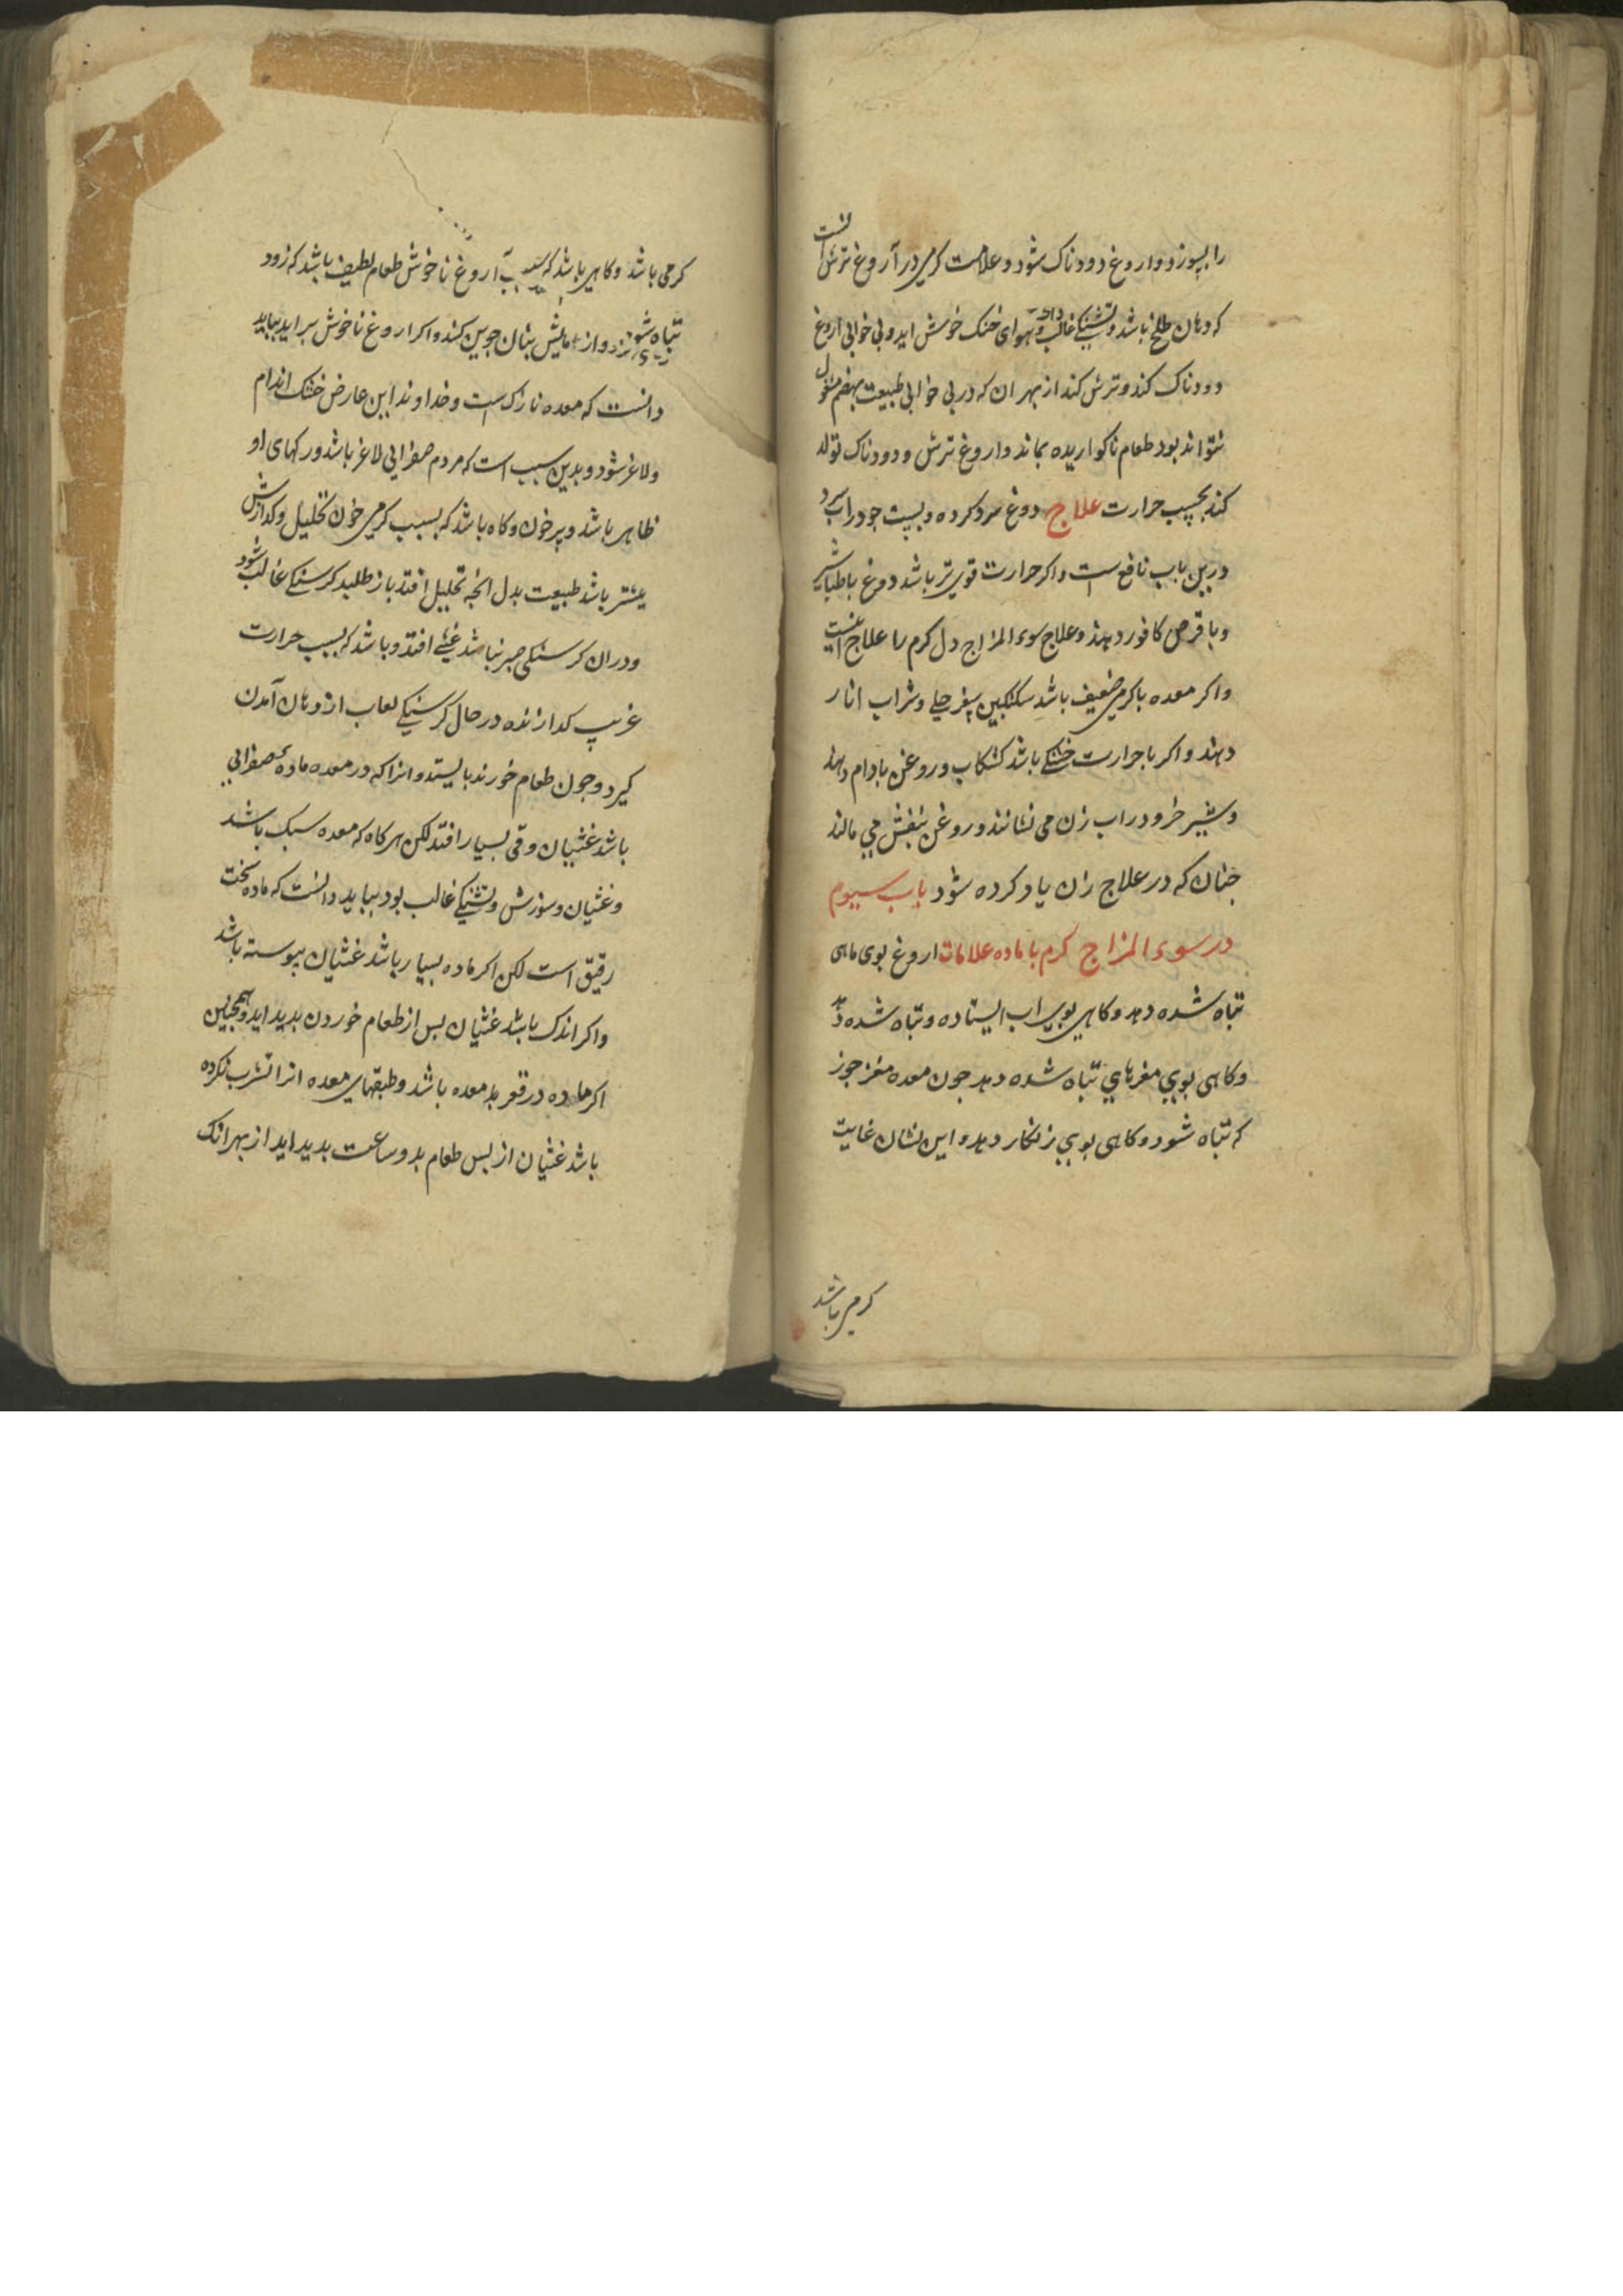 را بسوزد و اروغ دودناک شود و علامت کرمی در آروغ ترش انست
که دهان طلخ باشد و تشنکی غالب و هوای خنک خوش اید و بی خوابی اروغ
دودناک کند و ترش کند از بهر ان که در بی خوابی طبیعت بهضم مشغول
نتواند بود طعام ناکواریده بماند و اروغ ترش و دودناک تولد
کند بحسب حرارت علاج دوغ سرد کرده و بست جو در اب سرد
درین باب نافع است و اکر حرارت قوی تر باشد دوغ با طباشیر
و با قرص کافور دهند و علاج سوء المزاج دل کرم را علاج اینست
واکر معده با کرمی ضعیف باشد سکنکبین سفرجلی و شراب انار
دهند و اکر با حرارت خشکی باشد کشکاب و روغن بادام دهند
و شیر خر و در اب زن می نشانند و روغن بنفش می مالند
جنان که در علاج زن یاد کرده شود باب سیوم
در سوء المزاج کرم با ماده علامات اروغ بوی ماهی
تباه شده دهد و کاهی بوی اب ایستاده و تباه شده دهد
وکاهی بوی مغزهای تباه شده دهد جون معده مغز جوز
که تباه شود و کاهی بوی زنکار دهد و این نشان غایت
کرمی باشد
کرمی باشد و کاهی باشد که سبب آروغ ناخوش طعام لطیف باشد که زود
تباه شود و ازمایش بنان جوین کنند و اکر اروغ ناخوش بر اید بباید
دانست که معده ناراک است و خداوند این عارض خشک اندام
ولاغر شود و بدین سبب است که مردم صفرایی لاغر باشد و رکهای او
ظاهر باشد و پر خون و کاه باشد که بسبب کرمی خون تحلیل و کدازش
بیشتر باشد طبیعت بدل انجه تحلیل افتد باز طلبد کرسنکی غالب شود
ودران کرسنکی صبر نباشد غشی افتد و باشد که بسبب حرارت
غریب کدازنده در حال کرسنکی لعاب از دهان آمدن
کیرد و جون طعام خورند بایستد و انرا که در معده ماده صفرایی
باشد غثیان و قی بسیار افتد لکن هرکاه که معده سبک باشد
وغثیان و سوزش و تشنکی غالب بود بباید دانست که ماده سخت
رقیق است لکن اکر ماده بسیار باشد غثیان پیوسته باشد
واکر اندک باشد غثیان بس از طعام خوردن بدید اید و همجنین
اکر ماده در قعر معده باشد و طبقهای معده انرا تشرب نکرده
باشد غثیان از بس طعام بدو ساعت بدید اید از بهر انک